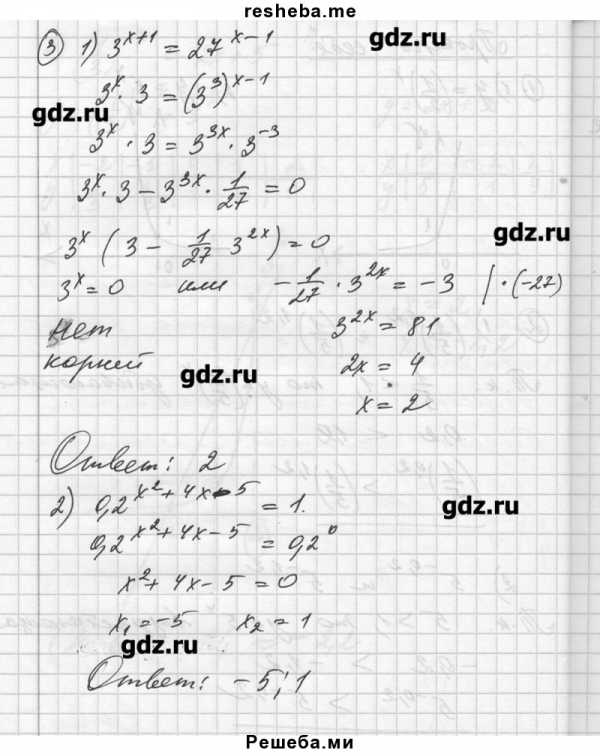 resheba.me
③ 1) 3^{x+1} = 27^{x-1}
gdz.ru
3^x · 3 = (3^3)^{x-1}
gdz.ru
3^x · 3 = 3^{3x} · 3^{-3}
3^x · 3 - 3^{3x} · 1/27 = 0
gdz.ru
3^x (3 - 1/27 3^{2x}) = 0
3^x = 0 или -1/27 · 3^{2x} = -3 | · (-27)
нет 3^{2x} = 81
корней 2x = 4
gdz.ru
x = 2
Ответ: 2
2) 0,2^{x^2+4x-5} = 1.
gdz.ru
0,2^{x^2+4x-5} = 0,2^0
x^2 + 4x - 5 = 0
x_1 = -5 x_2 = 1
gdz.ru
Ответ: -5; 1
Решеба.ми